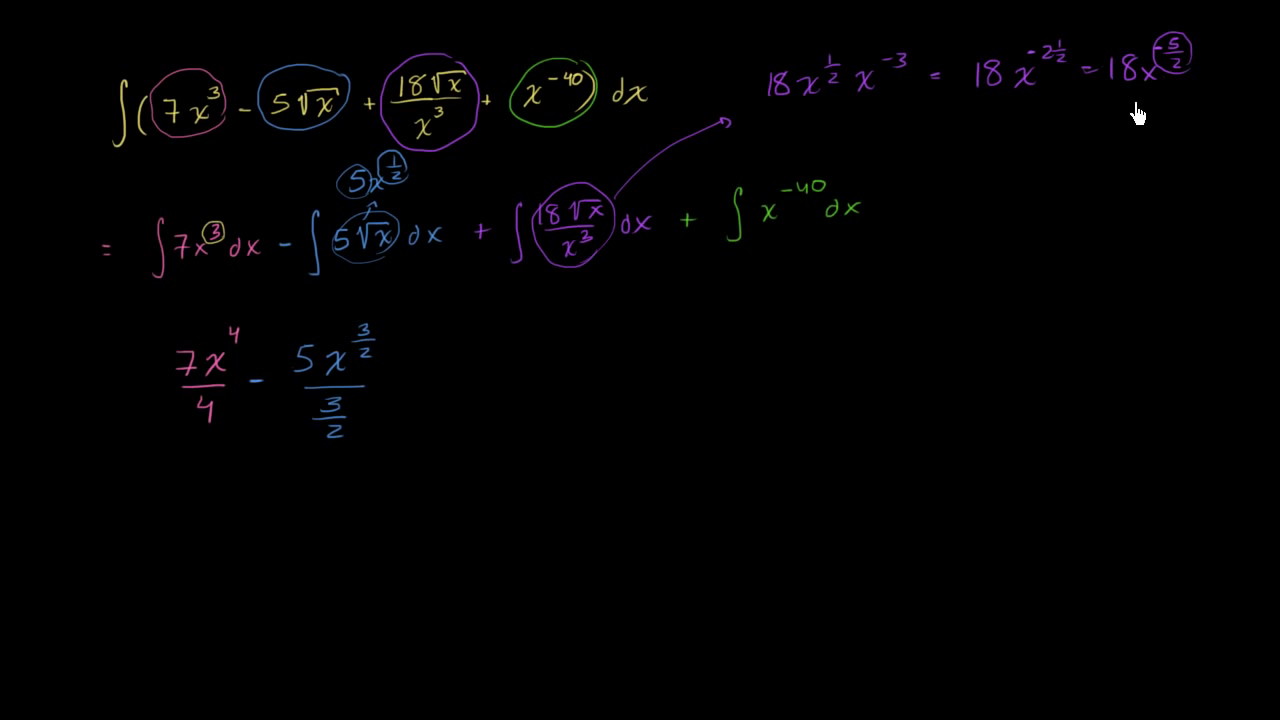 ∫(7x³ - 5√x + 18√x/x³ + x⁻⁴⁰) dx
18x^(1/2) x^-3 = 18x^(-2 1/2) = 18x^(-5/2)
5x^(1/2)
= ∫7x³dx - ∫5√x dx + ∫18√x/x³ dx + ∫x⁻⁴⁰dx
7x⁴/4 - 5x^(3/2)/(3/2)